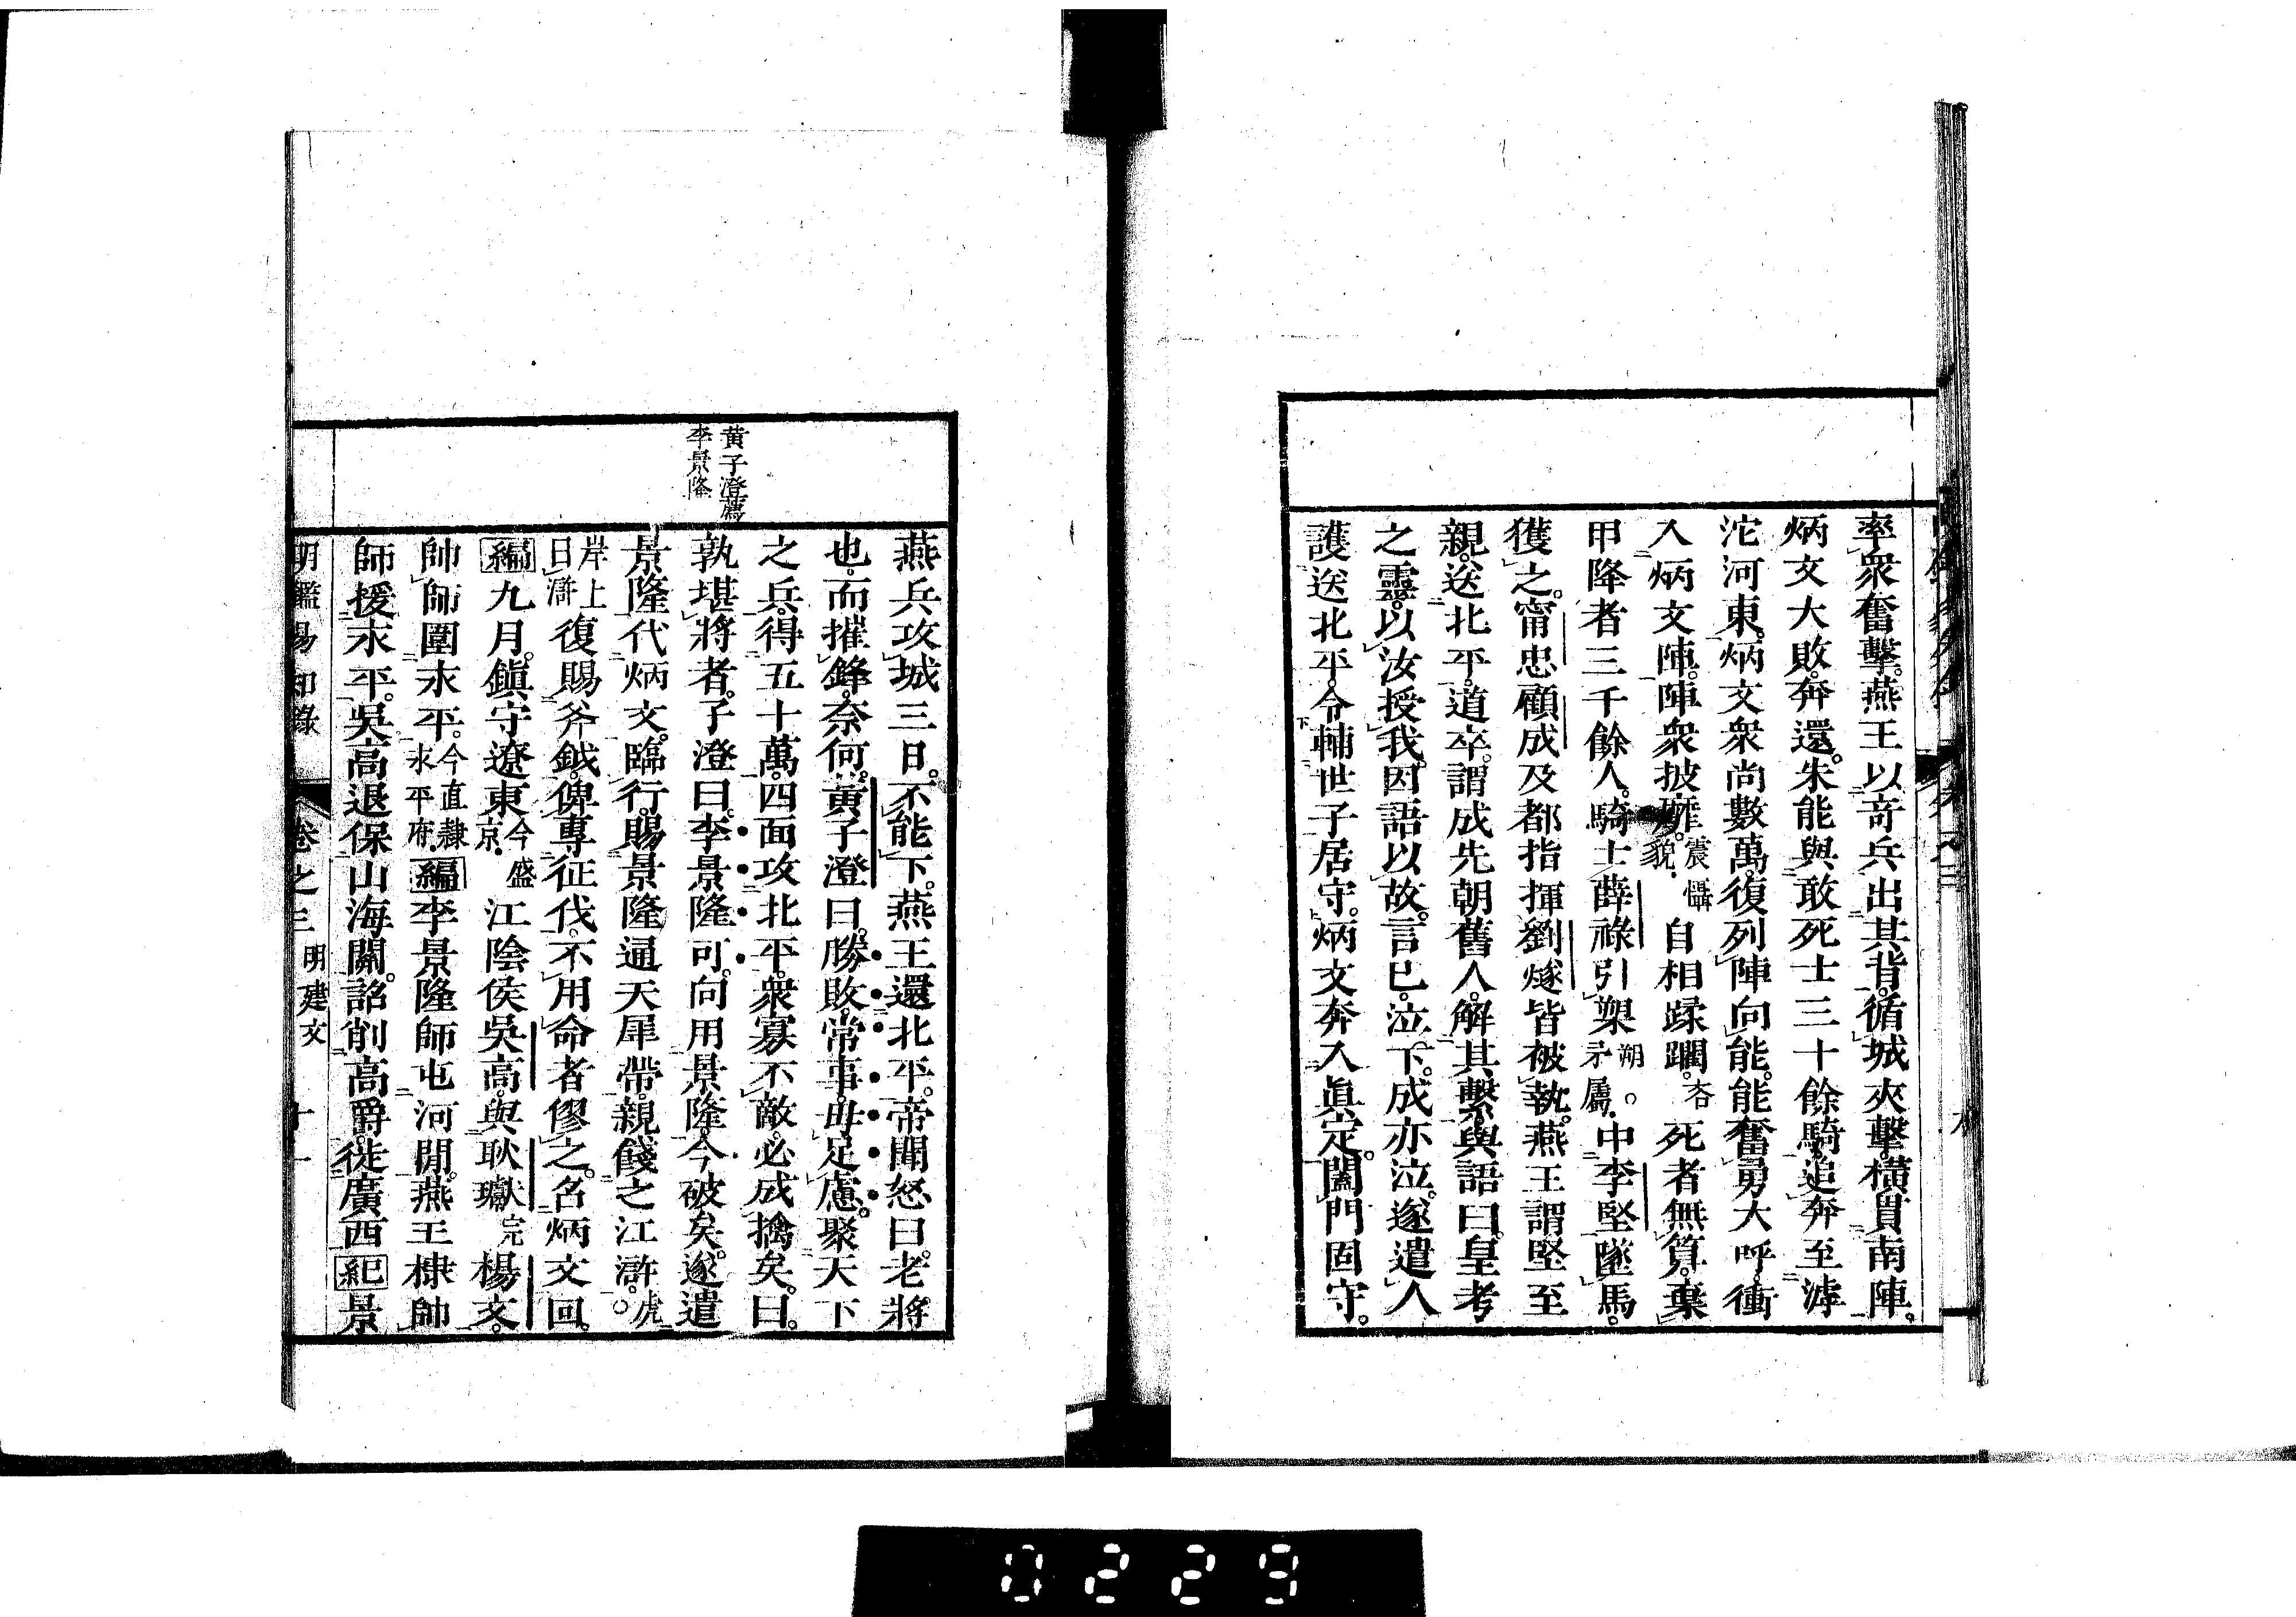 率衆奮擊。燕王以奇兵出其背。循城夾擊。橫貫南陣。
炳文大敗。奔還。朱能與敢死士三十餘騎。追奔至滹
沱河東。炳文衆尚數萬。復列陣向能。能奮勇大呼。衝
入炳文陣。陣衆披靡。震懾貌。自相蹂躙。吝死者無算。棄
甲降者三千餘人。騎士薛祿引槊朔。矛屬。中李堅墜馬。
獲之。甯忠顧成及都指揮劉燧皆被執。燕王謂堅至
親。送北平。道卒。謂成先朝舊人。解其繫。與語曰。皇考
之靈。以汝授我。因語以故。言已。泣下。成亦泣。遂遣人
護送北平。令輔世子居守。炳文奔入眞定。闔門固守。
燕兵攻城三日。不能下。燕王還北平。帝聞怒曰。老將
也。而摧鋒。奈何。黃子澄曰。勝敗常事。毋足慮。聚天下
之兵。得五十萬。四面攻北平。衆寡不敵。必成擒矣。曰。
孰堪將者。子澄曰。李景隆可。向用景隆。今破矣。遂遣
黃子澄薦
李景隆
景隆代炳文。臨行。賜景隆通天犀帶。親餞之江滸。虎。
岸上曰滸復賜斧鉞。俾專征伐。不用命者僇之。召炳文回。
編九月。鎭守遼東今盛京。江陰侯吳高。與耿瓛完楊文。
帥師圍永平。今直隸永平府。編李景隆師屯河閒。燕王棣帥
師援永平。吳高退保山海關。詔削高爵。徙廣西紀景
明鑑易知錄 卷之三 明建文 十一
0229